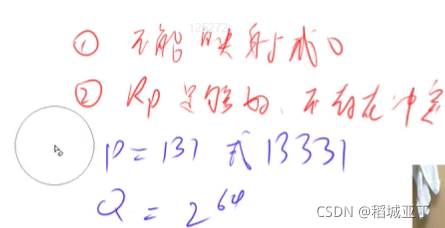 126272
① 不能映射成0
② Rp足够好、不存在冲突
P = 131 或 13331
Q = 2^64
CSDN @稻城亚丁